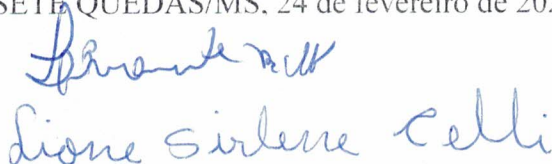 SETE QUEDAS/MS, 24 de fevereiro de 202
Lione Sirlene Celli